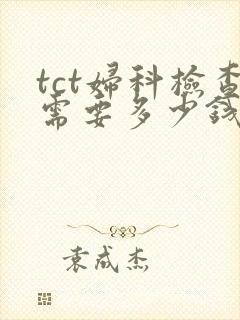 tct婦科檢查
需要多少錢
袁成杰